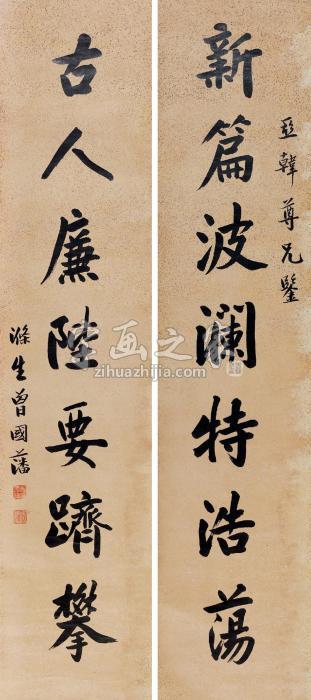 亞韓尊兄鑒
新篇波瀾特浩蕩
古人廉陛要躋攀
滌生曾國藩
書画之家
zihuazhijia.com